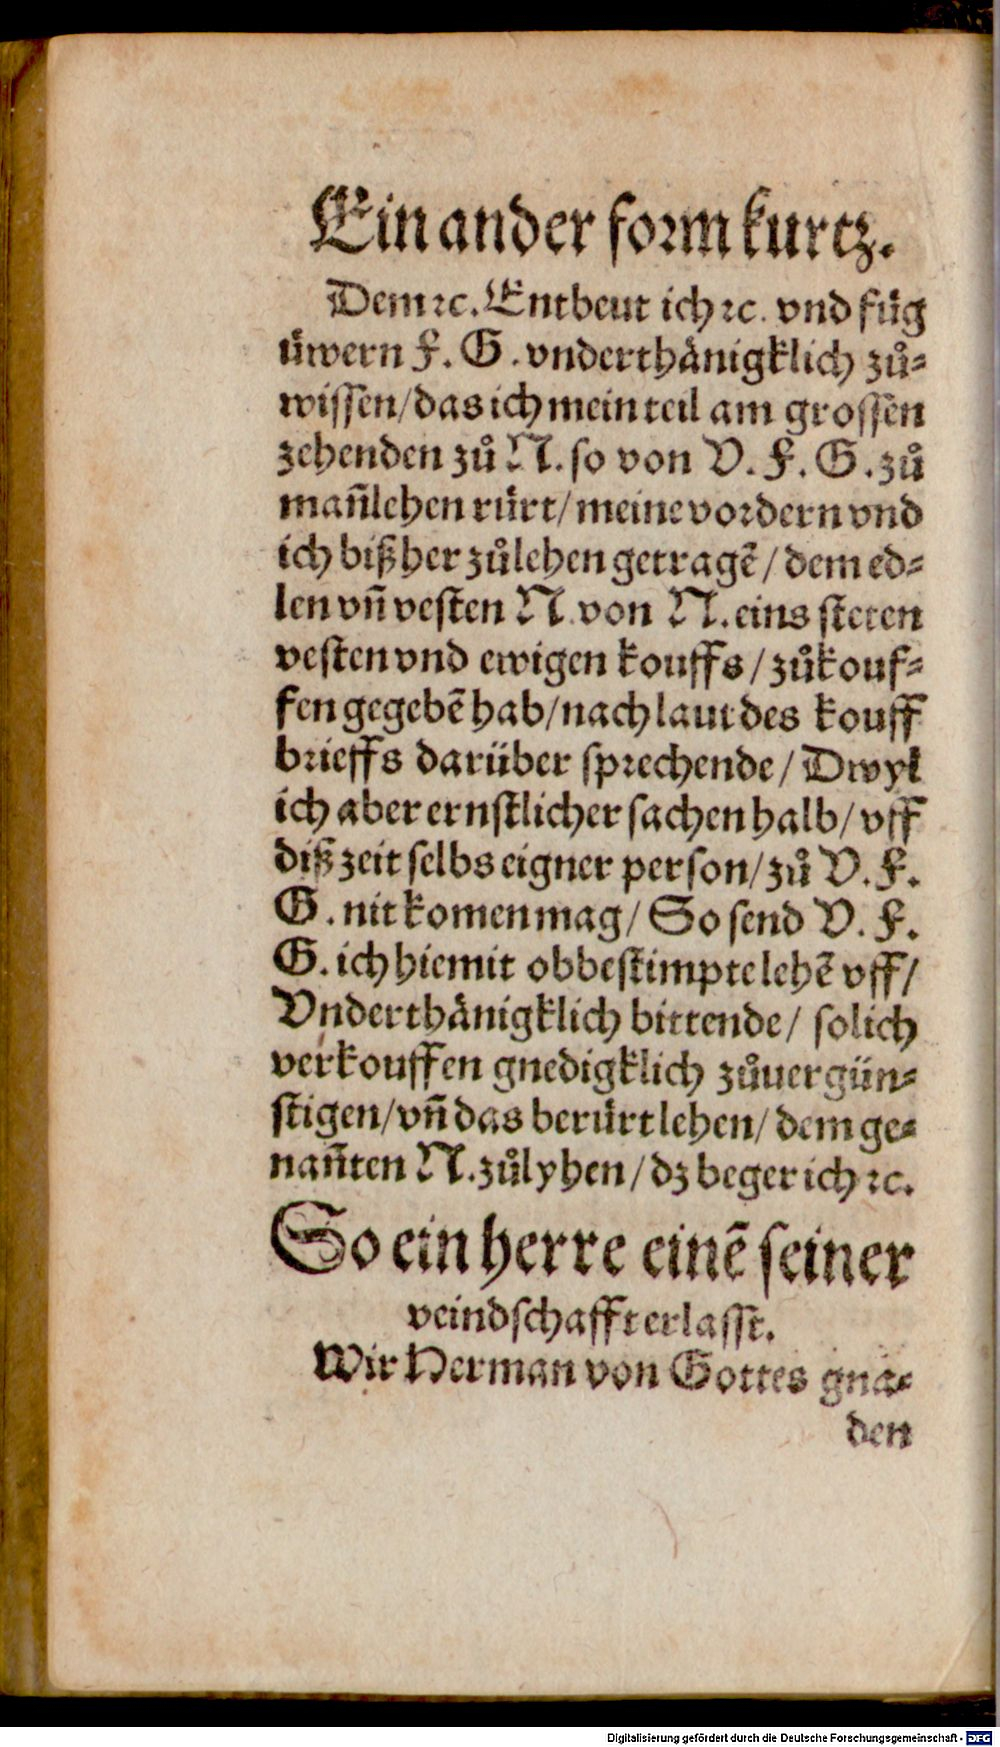 Ein ander form kurtz.
Dem ꝛc. Entbeut ich ꝛc. vnd fuͤg
uͤwern F. G. vnderthaͤnigklich zuͦ-
wissen/das ich mein teil am grossen
zehenden zuͦ N. so von V. F. G. zuͦ
man̄lehen ruͤrt/ meine vordern vnd
ich bißher zuͦlehen getragē/ dem ed-
len vn̄ vesten N. von N. eins steten
vesten vnd ewigen kouffs/ zuͦkouf-
fen gegebē hab/nach laut des kouff
brieffs darüber sprechende/ Dwyl
ich aber ernstlicher sachen halb/ vff
diß zeit selbs eigner person/zuͦ V. F.
G. nit komen mag/ So send V. F.
G. ich hiemit obbestimpte lehē vff/
Vnderthaͤnigklich bittende/ solich
verkouffen gnedigklich zuͦuergün-
stigen/vn̄ das beruͤrt lehen/ dem ge-
nan̄ten N. zuͦlyhen/ dz beger ich ꝛc.
So ein herre einē seiner
veindschafft erlasst.
Wir Herman von Gottes gna-
den
Digitalisierung gefördert durch die Deutsche Forschungsgemeinschaft - DFG